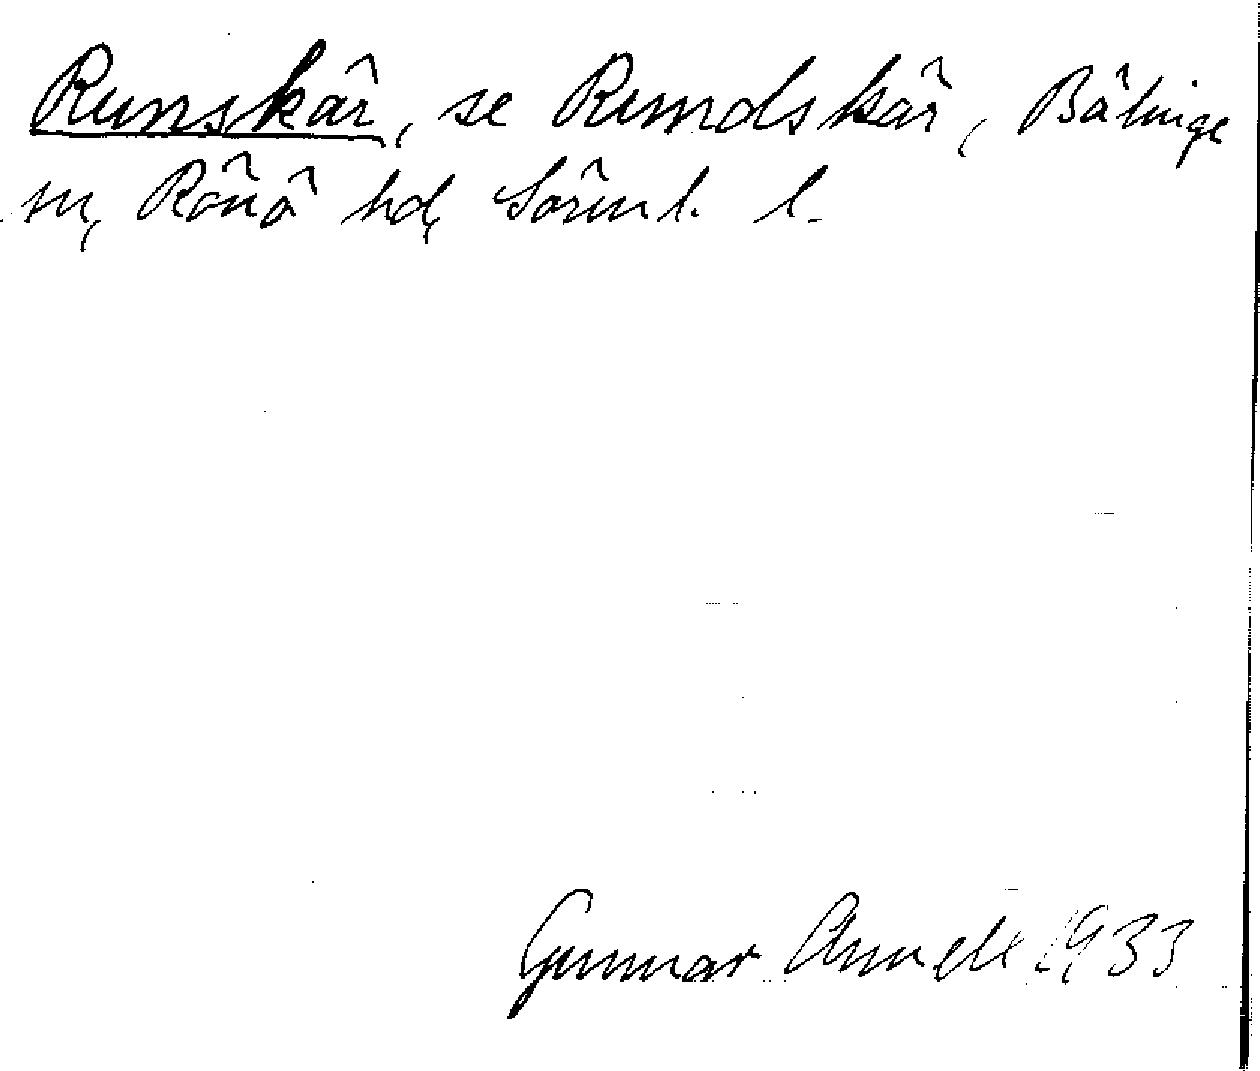 Runskär, se Rundskär, Bälinge
sn, Rönö hd, Sörml. l.
Gunnar Annell 1933